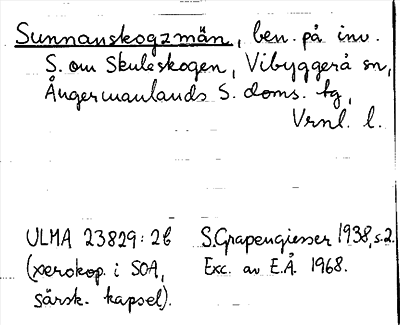 Sunnanskogzmän, ben. på inv.
S. om Skuleskogen, Vibyggerå sn,
Ångermanlands S. doms. tg,
Vrnl. l.
ULMA 23829:26 S. Grapengiesser 1938, s.2.
(xerokop. i SOA, Exc. av E.Å. 1968.
särsk. kapsel).